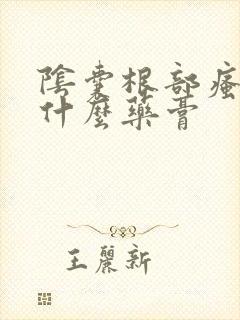 陰囊根部瘙
什麼藥膏
王麗新